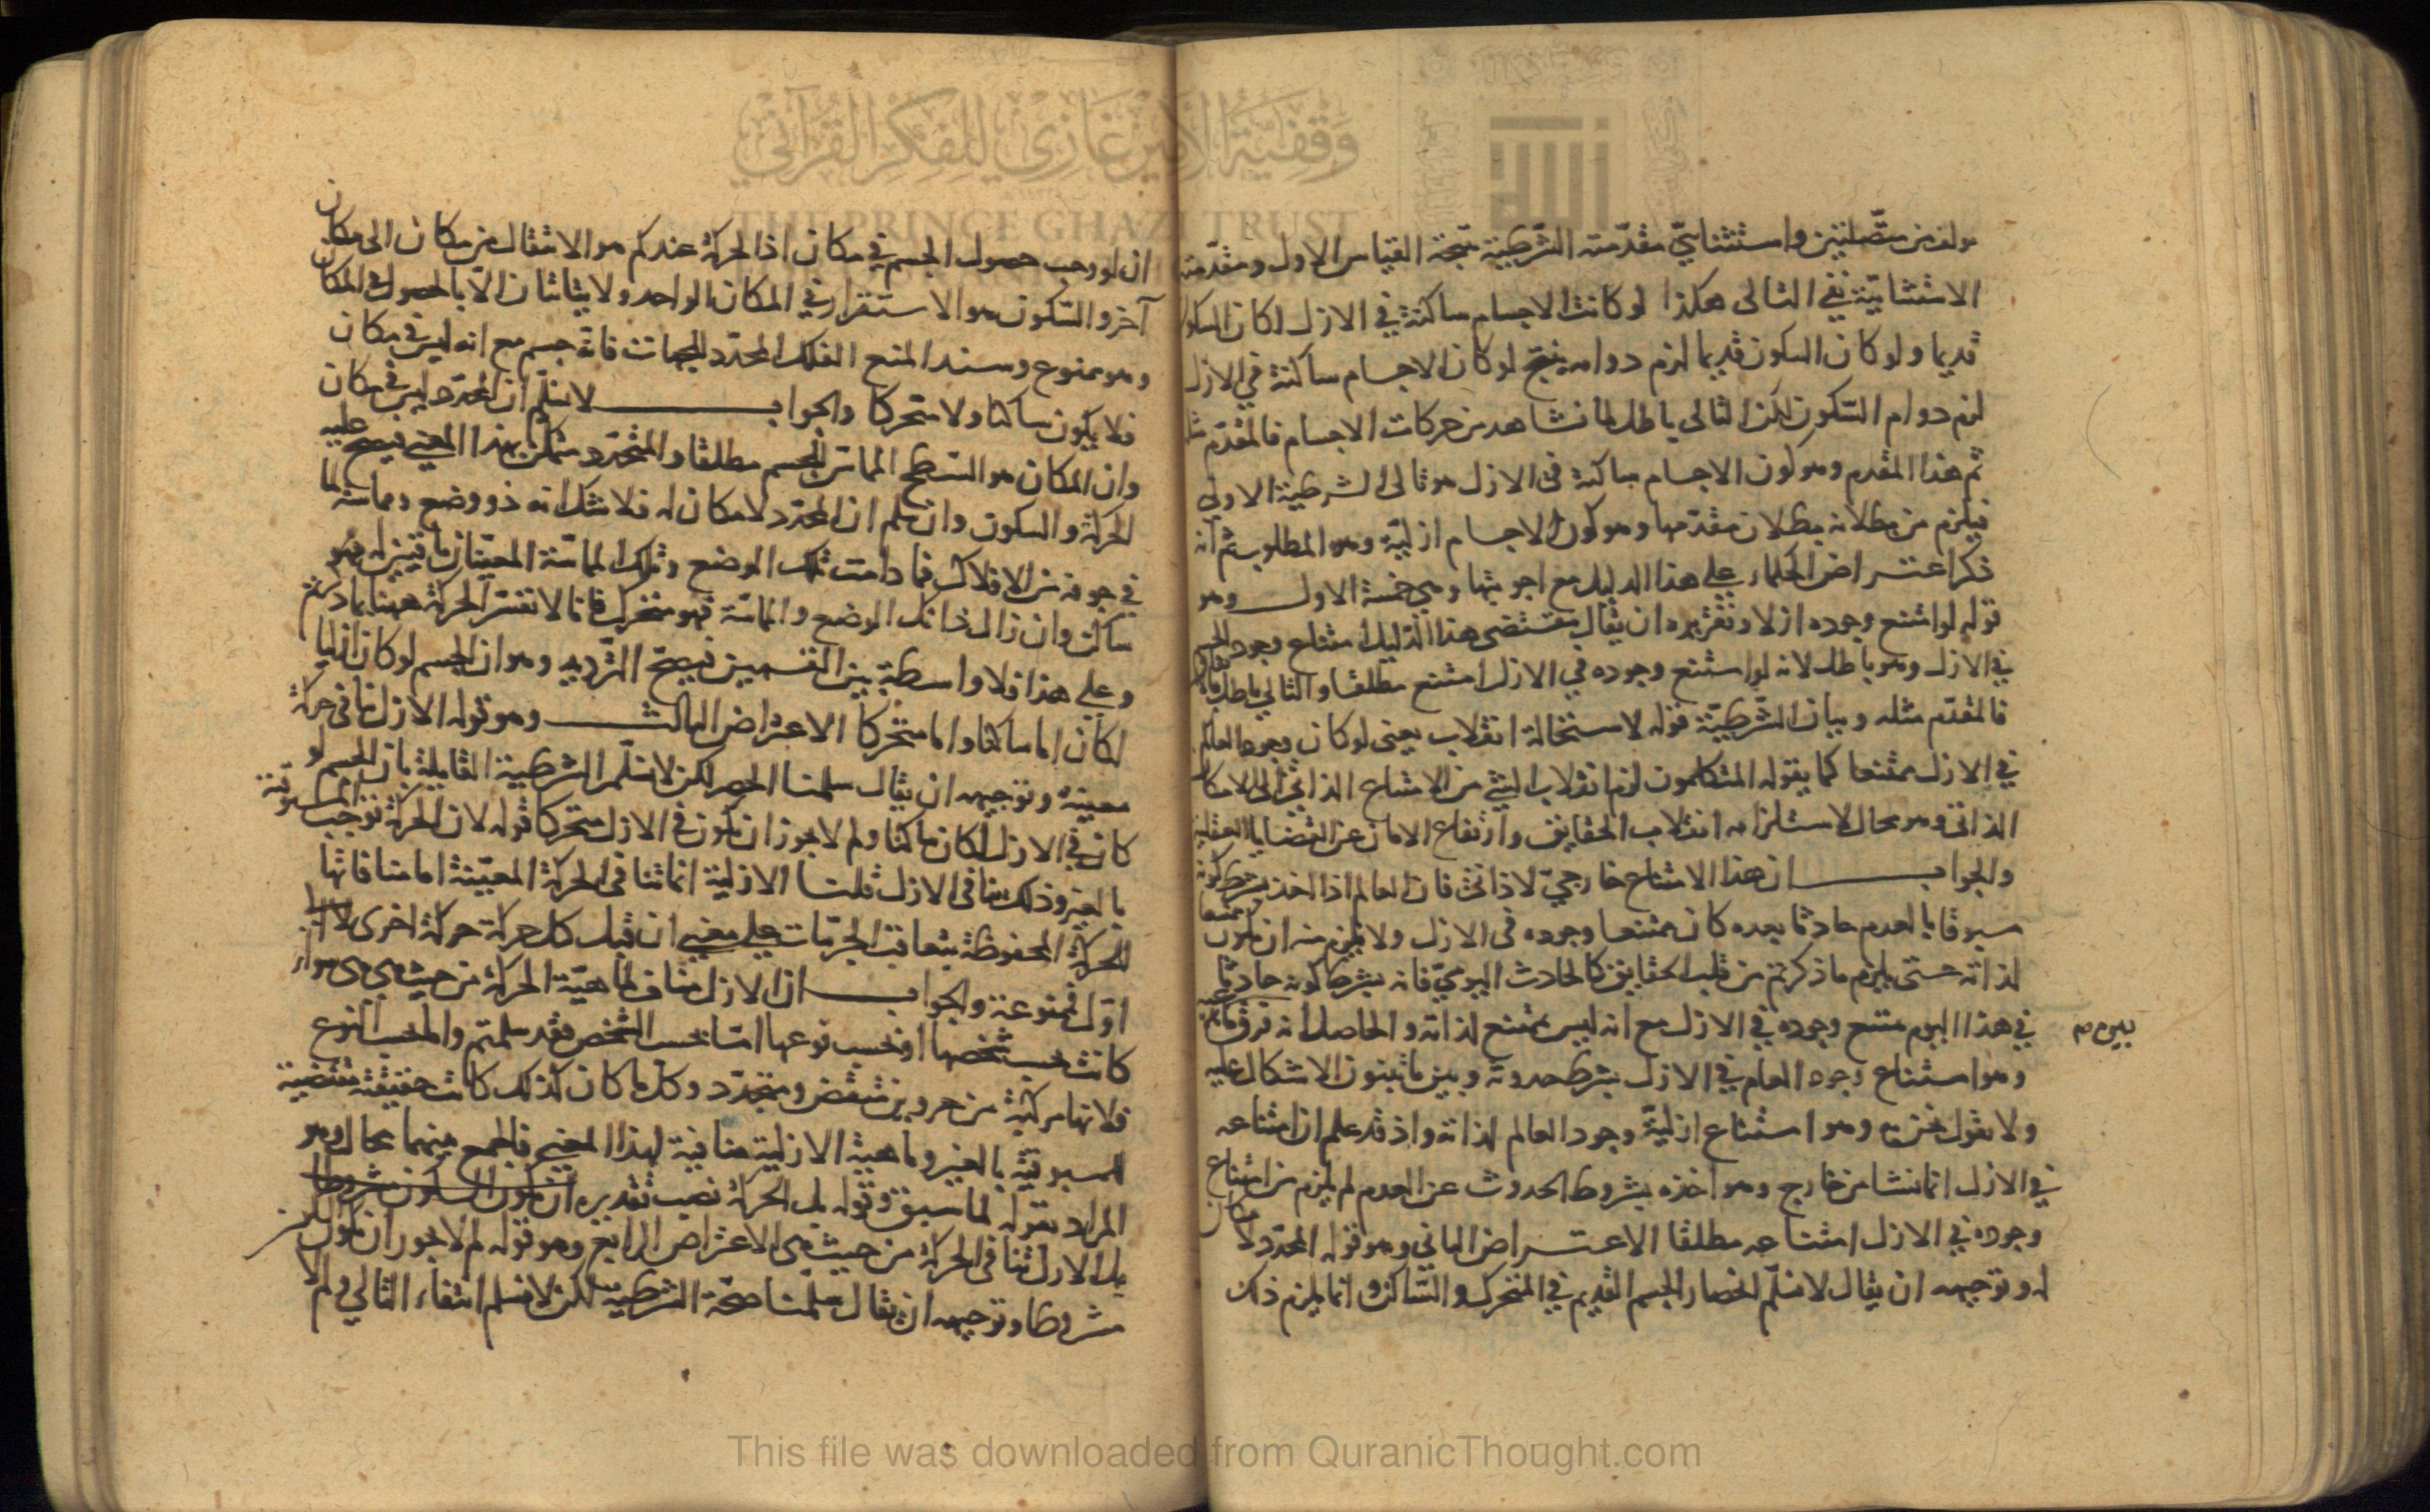 مولف من متصلتين واستثنائي مقدمته الشرطية نتيجة القياس الاول ومقدمته
الاستثنائية نفي التالى هكذا لو كانت الاجسام ساكنة في الازل لكان السكون
قديما ولو كان السكون قديما لزم دوامه ينتج لو كان الاجسام ساكنة في الازل
لزم دوام السّكون لكن التالى باطل لما نشاهد من حركات الاجسام فالمقدّم مثله
ثم هذا المقدم وهو كون الاجسام ساكنة فى الازل هو تالى الشرطية الاولى
فيلزم من بطلانه بطلان مقدّمها وهو كون الاجسام ازليّة وهو المطلوب ثم انه
ذكر اعتراض الحكماء على هذا الدليل مع اجوبتها وهي خمسة الاول وهو
قوله لو امتنع وجوده ازلا وتقريره ان يقال مقتضى هذا الدّليل امتناع وجود الجسم
في الازل وهو باطل لانه لو امتنع وجوده في الازل امتنع مطلقا والتالي باطل
فالمقدّم مثله وبيان الشّرطيّة قوله لاستحالة انقلاب يعنى لو كان وجود العالم
في الازل ممتنعا كما يقوله المتكلمون لزم انقلاب الشئ من الامتناع الذاتي الى الامكان
الذاتى وهو محال لاستلزامه انقلاب الحقايق وارتفاع الامان عن القضايا العقلية
والجواب ان هذا الامتناع خارجيّ لا ذاتىّ فان العالم اذا اخذ بشرط كونه
مسبوقا بالعدم حادثا بعده كان ممتنعا وجوده فى الازل ولا يلزم منه ان يكون ممتنعا
لذاته حتى يلزم ما ذكرتم من قلب الحقايق كالحادث اليوميّ فانه بشرط كونه حادثا
في هذا اليوم ممتنع وجوده في الازل مع انه ليس بممتنع لذاته والحاصل انه فرق
وهو امتناع وجود العالم في الازل بشرط حدوثه وبين ما تبنون الاشكال عليه
ولا نقول نحن به وهو امتناع ازليّة وجود العالم لذاته واذ قد علم ان امتناعه
في الازل انما نشا من خارج وهو اخذه بشرط الحدوث عن العدم لم يلزم من امتناع
وجوده في الازل امتناعه مطلقا الاعتراض الثاني وهو قوله المحدّد لا مكان
له وتوجيهه ان يقال لا نسلّم انحصار الجسم القديم في المتحرك والسّاكن وانما يلزم ذلك
ان لو وجب حصول الجسم في مكان اذا الحركة عندكم هو الانتقال من مكان الى مكان
آخر والسّكون هو الاستقرار في المكان الواحد ولا يتاتان الّا بالحصول في المكان
وهو ممنوع وسند المنع الفلك المحدّد للجهات فانه جسم مع انه ليس في مكان
فلا يكون ساكنا ولا متحركا والجواب لا نسلّم ان المحدّد ليس في مكان
وان المكان هو السّطح المماسّ للجسم مطلقا والمحدّد متمكن بهذا المعنى فيصح عليه
الحركة والسكون وان سلم ان المحدّد لا مكان له فلا شك انه ذو وضع ومماسة لما
في جوفه من الافلاك فما دامت تلك الوضع وتلك المماسّة المعيّنان باقيتين له فهو
ساكن وان زال ذانك الوضع والمماسّة فهو متحرك فانا لا نفسّر الحركة ههنا بما ذكرتم
وعلى هذا فلا واسطة بين القسمين فيصحّ الترديد وهو ان الجسم لو كان ازليا
لكان اما ساكنا واما متحركا الاعتراض الثالث وهو قوله الازل ينافى حركة
معينة وتوجيهه ان يقال سلمنا الحصر لكن لا نسلّم الشرطية القايلة بان الجسم لو
كان في الازل لكان ساكنا ولم لا يجوز ان يكون في الازل متحركا قوله لان الحركة توجب المسبوقية
بالغير وذلك ينافى الازل قلنا الازلية انما تنافى الحركة المعيّنة اما منافاتها
للحركة المحفوظة بتعاقب الجزئيات على معنى ان قبل كل حركة حركة اخرى لا الى
اول فممنوعة والجواب ان الازل مناف لماهيّة الحركة من حيث هي هى سواء
كانت بحسب شخصها او بحسب نوعها امّا بحسب الشخص فقد سلمتم واما بحسب النوع
فلانها مركبة من جزوين متقض ومتجدّد وكل ما كان كذلك كانت حقيقته مقتضية
للمسبوقية بالغير وماهية الازلية منافية لهذا المعنى فالجمع بينهما محال وهو
المراد بقوله لما سبق وقوله بل الحركة نصب تقديره ان يكون السكون مشروطا
بل الازل تنافى الحركة من حيث هى الاعتراض الرابع وهو قوله لم لا يجوز ان يكون السكون
مشروطا وتوجيهه ان يقال سلّمنا صحّة الشرطية لكن لا نسلم انتفاء التالي ولم لا
وقفية الأمير غازي للفكر القرآني
THE PRINCE GHAZI TRUST
This file was downloaded from QuranicThought.com